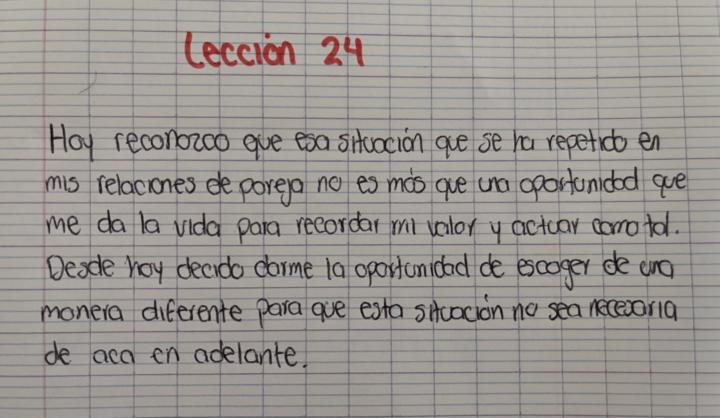 Lección 24
Hoy reconozco que esa situación que se ha repetido en
mis relaciones de pareja no es más que una oportunidad que
me da la vida para recordar mi valor y actuar como tal.
Desde hoy decido darme la oportunidad de escoger de una
manera diferente para que esta situación no sea necesaria
de aca en adelante.